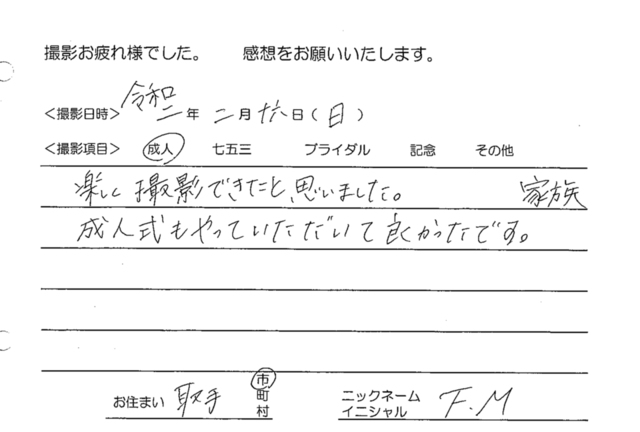 撮影お疲れ様でした。 感想をお願いいたします。
<撮影日時> 令和二年 二月 十六日(日)
<撮影項目> 成人 七五三 ブライダル 記念 その他
楽しく撮影できたと思いました。 家族
成人式もやっていただいて良かったです。
お住まい 取手 市町村 ニックネーム イニシャル F.M